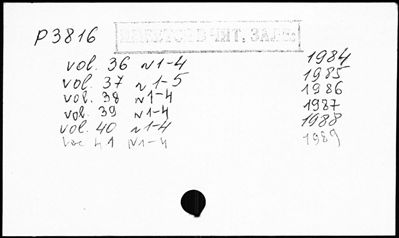 P3816
vol. 36 N1-4 1984
vol. 37 N1-5 1985
vol. 38 N1-4 1986
vol. 39 N1-4 1987
vol. 40 N1-4 1988
41 N1-4 1989